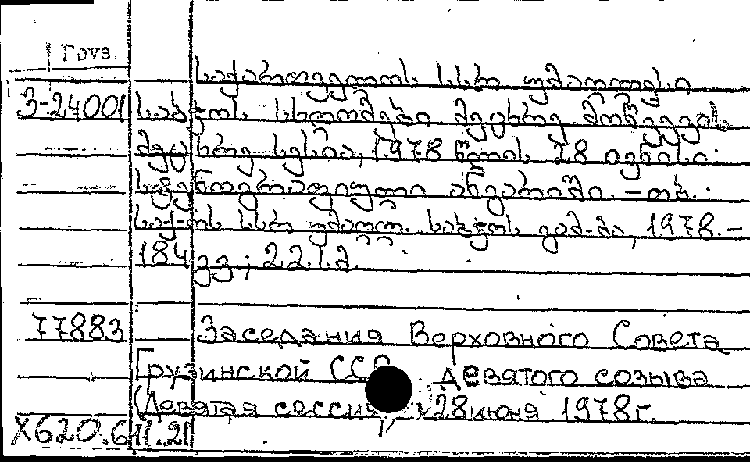 Груз.
საქართველოს სსრ უმაღლესი
3-24001 საბჭოს სხდომები მეცხრე მოწვევის
მეცხრე სესია, 1978 წლის 28 ივნისი
სტენოგრაფიული ანგარიში. – თბ.:
საქ. სსრ უმაღლ. საბჭოს გამ-მა, 1978. –
184 გვ.; 22 სმ.
77883 Заседания Верховного Совета
Грузинской ССР Девятого созыва
(Девятая сессия), 28 июня 1978 г.
Х620.611.21